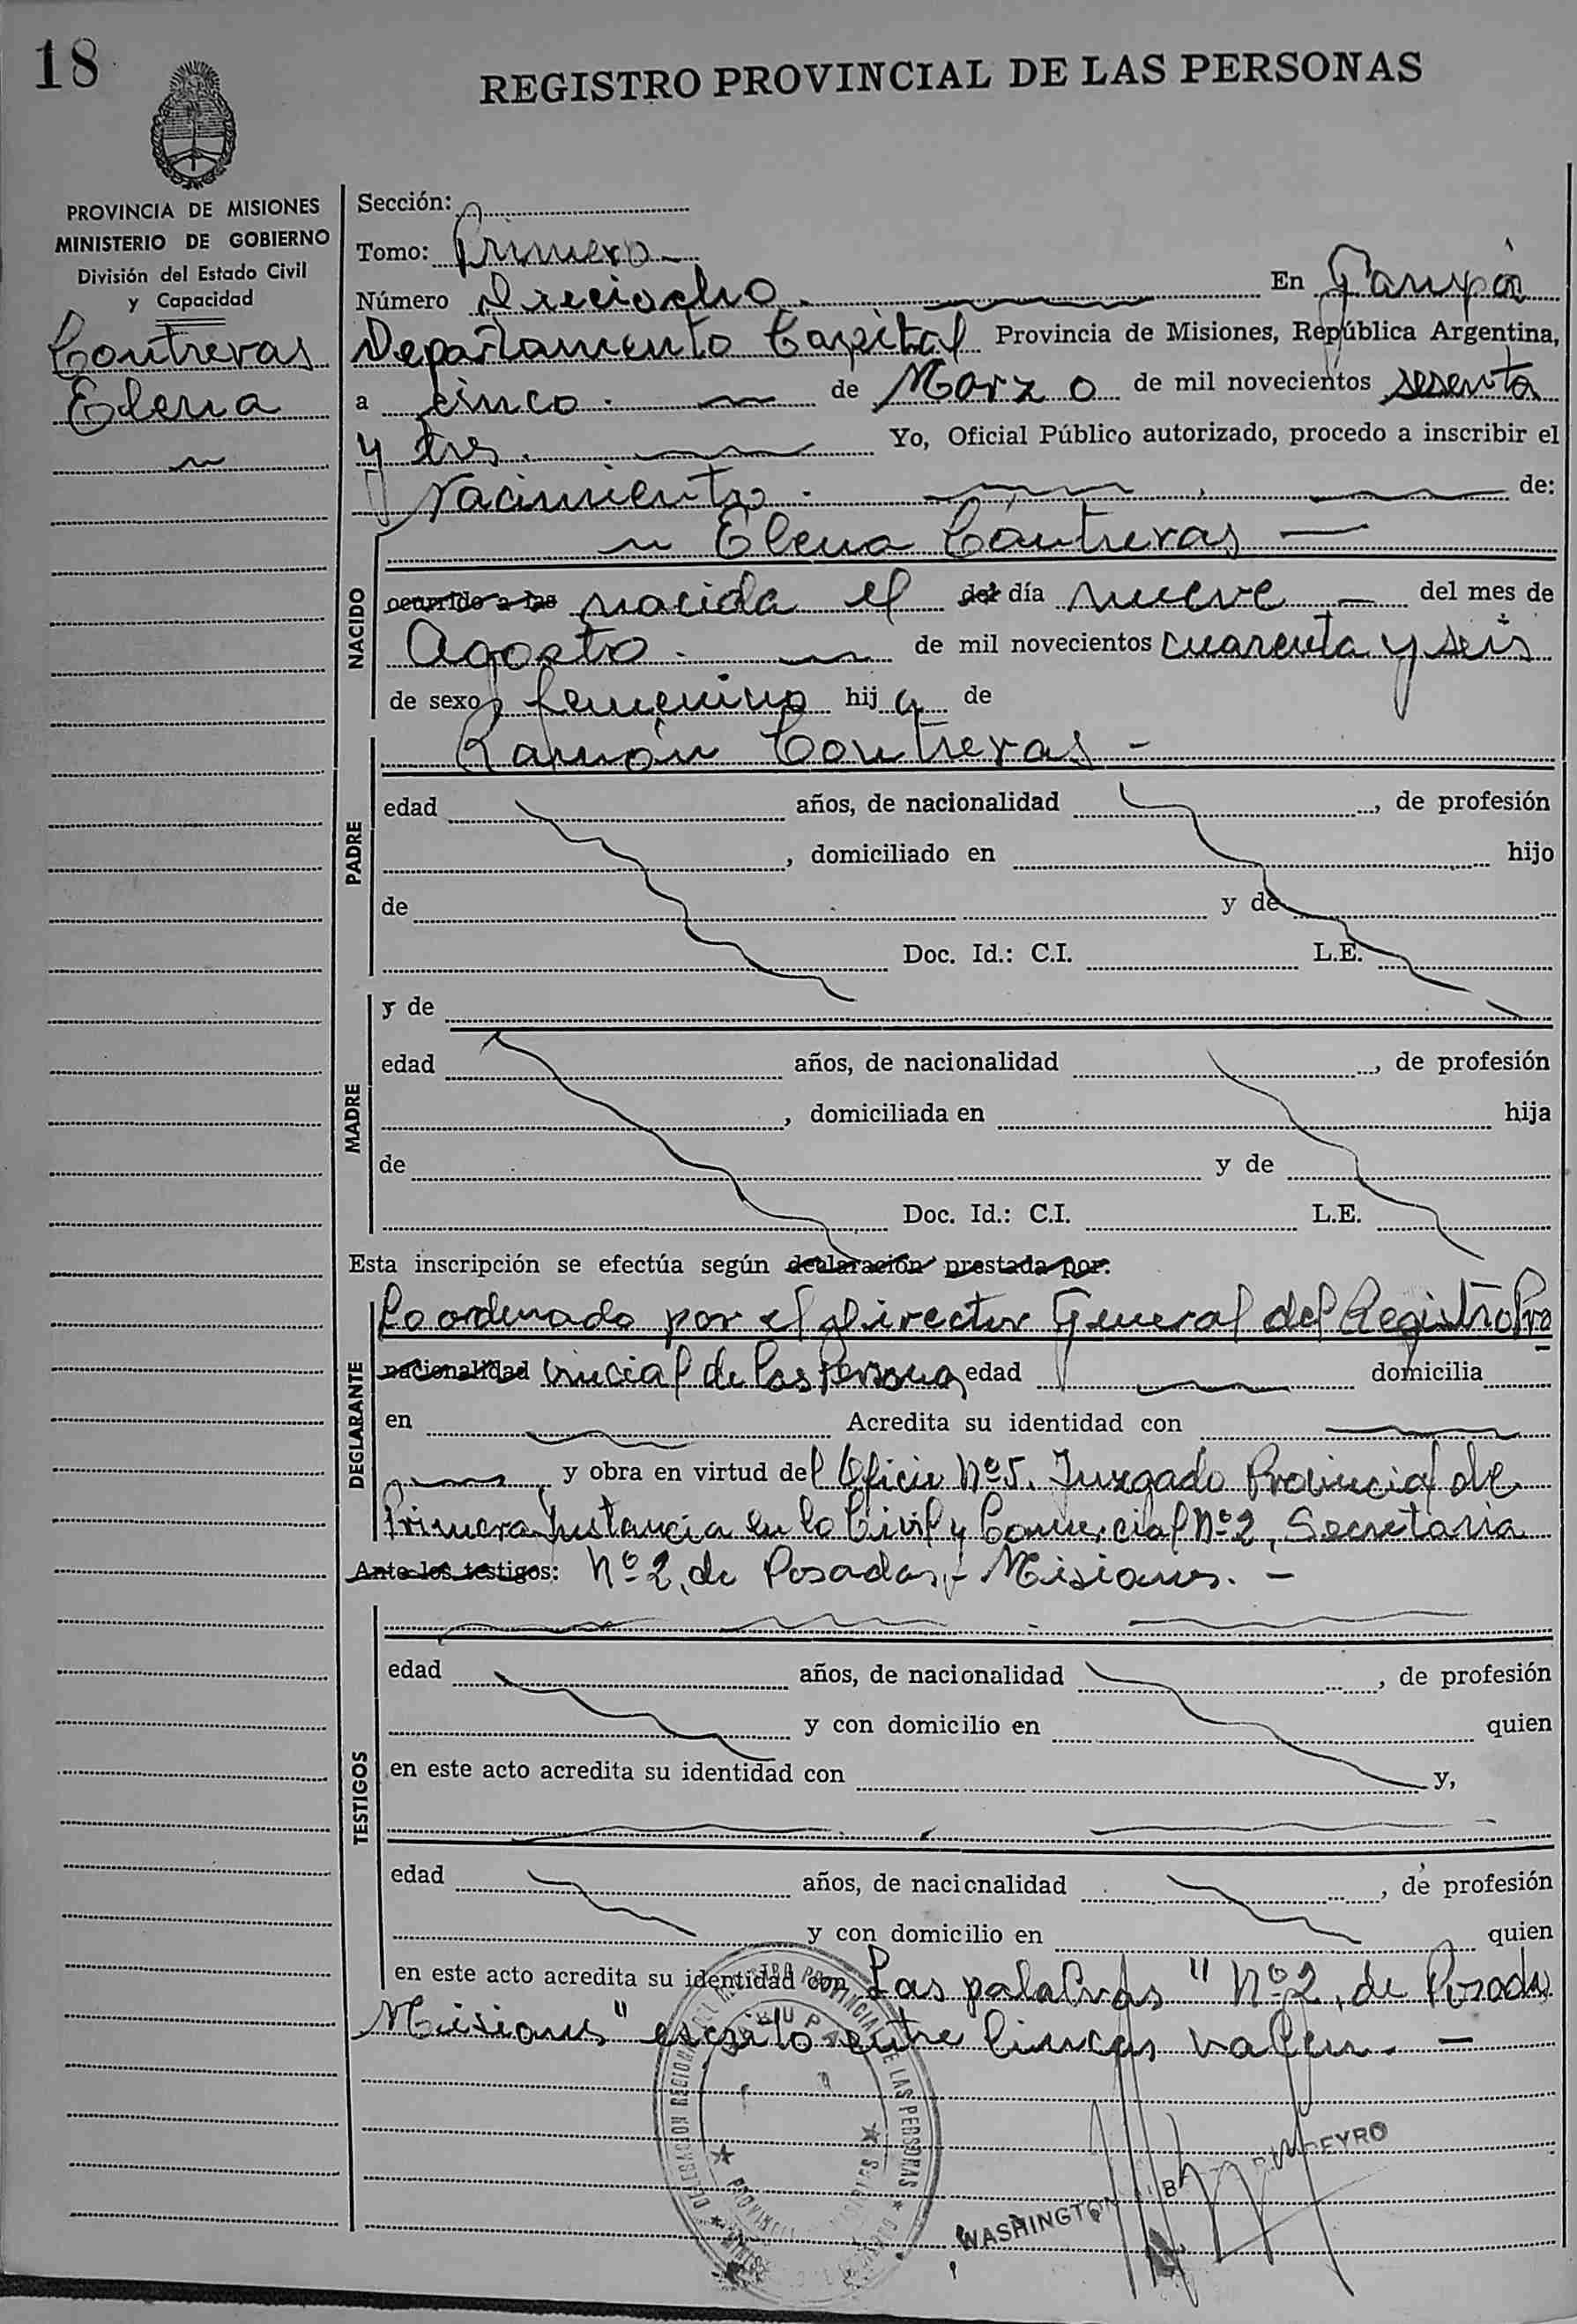 18
REGISTRO PROVINCIAL DE LAS PERSONAS
PROVINCIA DE MISIONES
MINISTERIO DE GOBIERNO
División del Estado Civil
y Capacidad
Contreras
Elena
Sección:
Tomo: Primero
Número Dieciocho. En Garupá
Departamento Capital Provincia de Misiones, República Argentina,
a cinco. de Marzo de mil novecientos sesenta
y tres. Yo, Oficial Público autorizado, procedo a inscribir el
Nacimiento. de:
Elena Contreras —
NACIDO
ocurrido a las nacida el del día nueve — del mes de
Agosto. de mil novecientos cuarenta y seis
de sexo femenino hija de
Ramón Contreras —
PADRE
edad años, de nacionalidad , de profesión
, domiciliado en hijo
de y de
Doc. Id.: C.I. L.E.
MADRE
y de
edad años, de nacionalidad , de profesión
, domiciliada en hija
de y de
Doc. Id.: C.I. L.E.
Esta inscripción se efectúa según declaración prestada por:
DECLARANTE
Lo ordenado por el Director General del Registro Pro
nacionalidad vincial de las Personas edad domicilia
en Acredita su identidad con
y obra en virtud del Oficio Nº 5. Juzgado Provincial de
Primera Instancia en lo Civil y Comercial Nº 2, Secretaria
Ante los testigos: Nº 2, de Posadas,- Misiones. —
TESTIGOS
edad años, de nacionalidad , de profesión
y con domicilio en quien
en este acto acredita su identidad con y,
edad años, de nacicnalidad , de profesión
y con domicilio en quien
en este acto acredita su identidad con Las palabras "Nº 2, de Posadas
Misiones" escrito entre lineas valen. —
DELEGACION REGIONAL DEL REGISTRO PROVINCIAL DE LAS PERSONAS
WASHINGTON